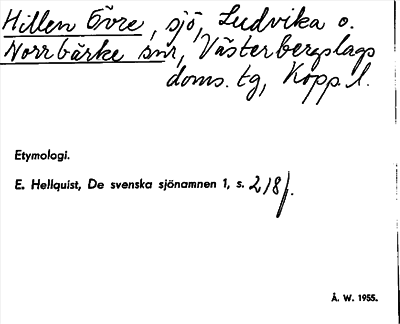 Hillen Övre, sjö, Ludvika o.
Norrbärke snr, Västerbergslags
doms. tg, Kopp. l.
Etymologi.
E. Hellquist, De svenska sjönamnen 1, s. 218f.
Å. W. 1955.